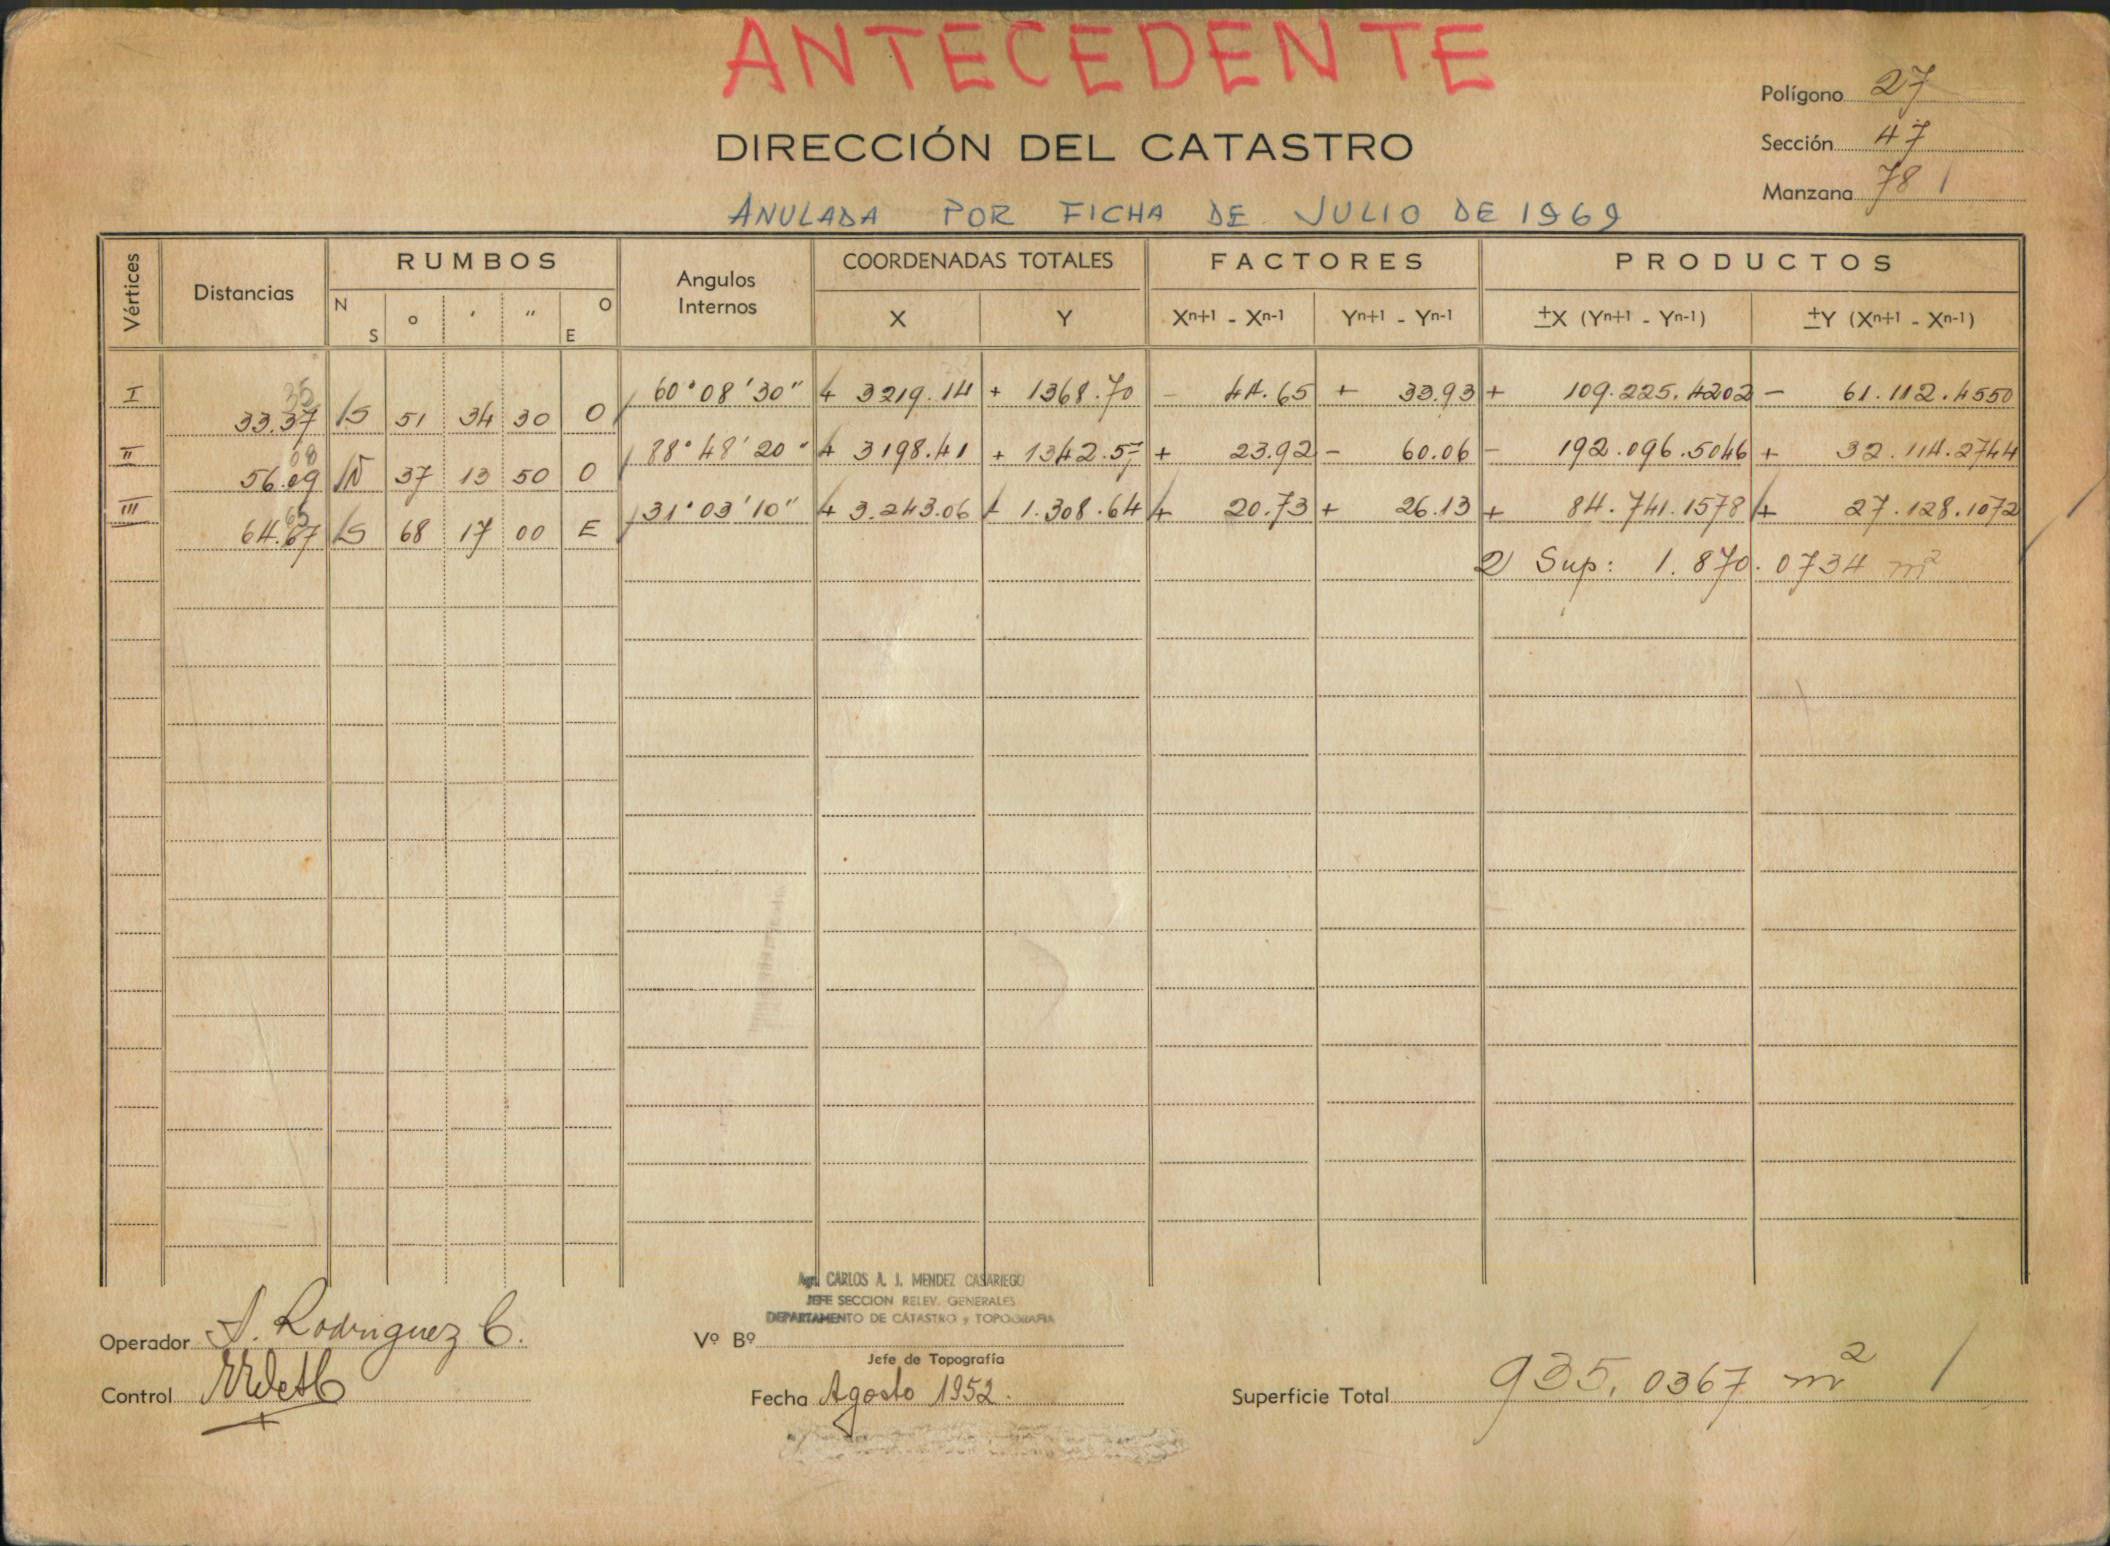 ANTECEDENTE
Polígono 27
DIRECCIÓN DEL CATASTRO
Sección 47
Manzana 781
ANULADA POR FICHA DE JULIO DE 1969
Vértices Distancias RUMBOS Angulos Internos COORDENADAS TOTALES FACTORES PRODUCTOS
N S ° ' " O E X Y Xn+1 - Xn-1 Yn+1 - Yn-1 ±X (Yn+1 - Yn-1) ±Y (Xn+1 - Xn-1)
35
I 60°08'30" + 3219.14 + 1368.70 - 44.65 + 33.93 + 109.225.4202 - 61.112.4550
33.37 S 51 34 30 O
08
II 88°48'20" + 3198.41 + 1342.57 + 23.92 - 60.06 - 192.096.5046 + 32.114.2744
56.09 N 37 13 50 O
65
III 31°03'10" + 3.243.06 + 1.308.64 + 20.73 + 26.13 + 84.741.1578 + 27.128.1072
64.67 S 68 17 00 E
2 Sup: 1.870.0734 m²
Agr. CARLOS A. J. MENDEZ CASARIEGO
JEFE SECCION RELEV. GENERALES
DEPARTAMENTO DE CATASTRO y TOPOGRAFIA
Operador A. Rodriguez C.
Vº Bº
Jefe de Topografía
Control
Fecha Agosto 1952.
Superficie Total 935,0367 m²